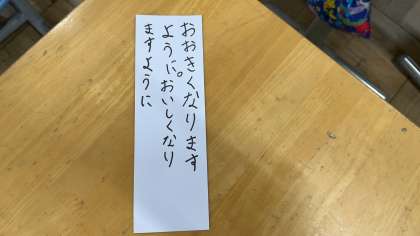 おおきくなります
ように。おいしくなり
ますように